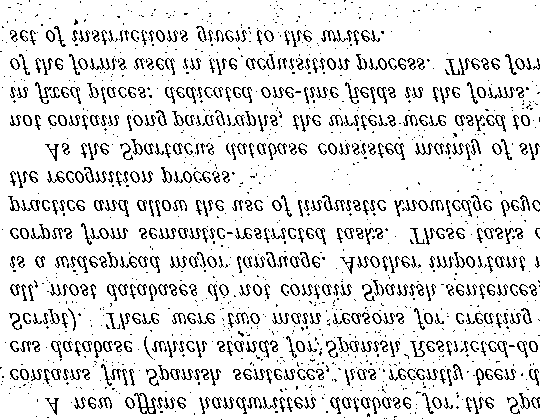 A new offline handwritten database for the Spa
contains full Spanish sentences, has recently been d
cus database (which stands for Spanish Restricted-do
Script). There were two main reasons for creating
all, most databases do not contain Spanish sentences,
is a widespread major language. Another important r
corpus from semantic-restricted tasks. These tasks c
practice and allow the use of linguistic knowledge beyo
the recognition process.
As the Spartacus database consisted mainly of sh
not contain long paragraphs, the writers were asked to c
in fixed places: dedicated one-line fields in the forms.
of the forms used in the acquisition process. These forr
set of instructions given to the writer.